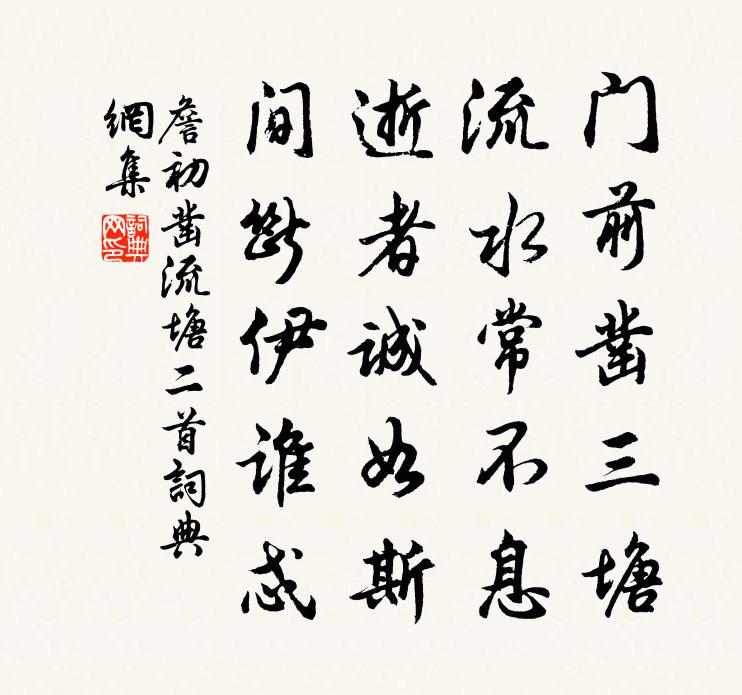 门前凿三塘
流水常不息
逝者诚如斯
间断伊谁忒
詹初凿流塘二首詞典
網集
詞典
网印